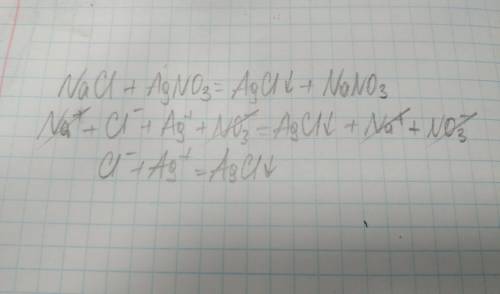 NaCl + AgNO₃ = AgCl↓ + NaNO₃
Na⁺ + Cl⁻ + Ag⁺ + NO₃⁻ = AgCl↓ + Na⁺ + NO₃⁻
Cl⁻ + Ag⁺ = AgCl↓